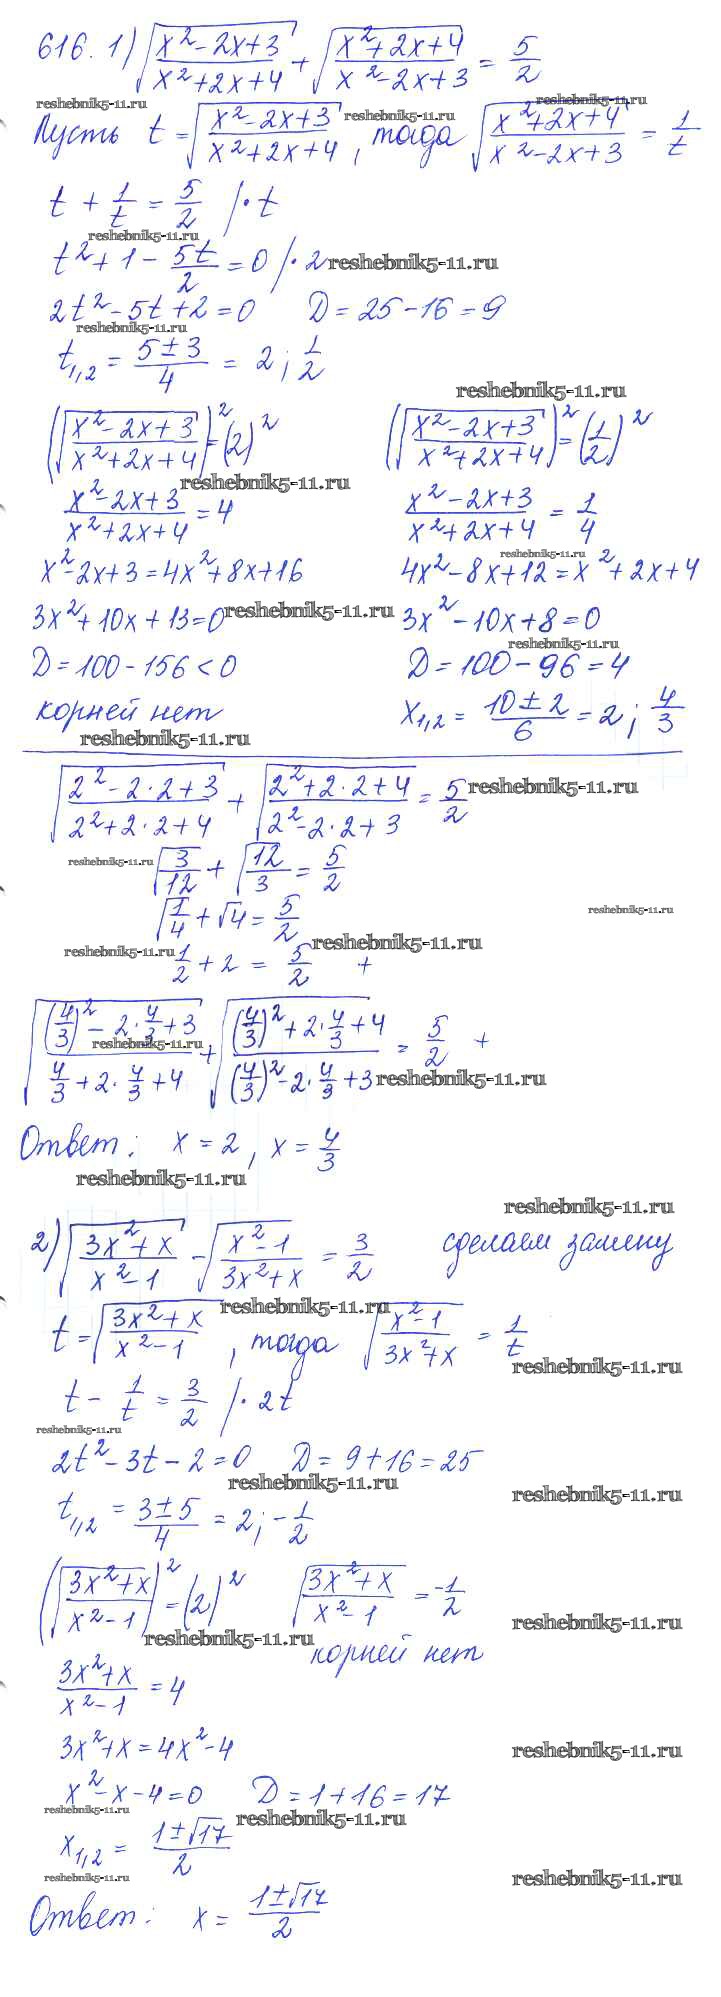 616. 1) √((x²-2x+3)/(x²+2x+4)) + √((x²+2x+4)/(x²-2x+3)) = 5/2
reshebnik5-11.ru reshebnik5-11.ru reshebnik5-11.ru
Пусть t = √((x²-2x+3)/(x²+2x+4)), тогда √((x²+2x+4)/(x²-2x+3)) = 1/t
t + 1/t = 5/2 /· t
reshebnik5-11.ru
t² + 1 - 5t/2 = 0 /· 2 reshebnik5-11.ru
2t² - 5t + 2 = 0 D = 25 - 16 = 9
reshebnik5-11.ru
t₁,₂ = (5±3)/4 = 2; 1/2
reshebnik5-11.ru
(√((x²-2x+3)/(x²+2x+4)))² = (2)² (√((x²-2x+3)/(x²+2x+4)))² = (1/2)²
reshebnik5-11.ru
(x²-2x+3)/(x²+2x+4) = 4 (x²-2x+3)/(x²+2x+4) = 1/4
reshebnik5-11.ru
x²-2x+3 = 4x²+8x+16 4x²-8x+12 = x²+2x+4
3x²+10x+13=0 reshebnik5-11.ru 3x²-10x+8=0
reshebnik5-11.ru
D = 100 - 156 < 0 D = 100 - 96 = 4
корней нет x₁,₂ = (10±2)/6 = 2; 4/3
reshebnik5-11.ru
√((2²-2·2+3)/(2²+2·2+4)) + √((2²+2·2+4)/(2²-2·2+3)) = 5/2 reshebnik5-11.ru
reshebnik5-11.ru √(3/12) + √(12/3) = 5/2
√(1/4) + √4 = 5/2 reshebnik5-11.ru
reshebnik5-11.ru reshebnik5-11.ru
1/2 + 2 = 5/2 +
√(((4/3)²-2·4/3+3)/(4/3+2·4/3+4)) + √(((4/3)²+2·4/3+4)/((4/3)²-2·4/3+3)) = 5/2 +
reshebnik5-11.ru reshebnik5-11.ru
Ответ: x = 2, x = 4/3
reshebnik5-11.ru
reshebnik5-11.ru
2) √((3x²+x)/(x²-1)) - √((x²-1)/(3x²+x)) = 3/2 сделаем замену
reshebnik5-11.ru
t = √((3x²+x)/(x²-1)), тогда √((x²-1)/(3x²+x)) = 1/t
reshebnik5-11.ru
t - 1/t = 3/2 /· 2t
reshebnik5-11.ru
2t² - 3t - 2 = 0 D = 9 + 16 = 25
reshebnik5-11.ru reshebnik5-11.ru
t₁,₂ = (3±5)/4 = 2; -1/2
(√((3x²+x)/(x²-1)))² = (2)² √((3x²+x)/(x²-1)) = -1/2
reshebnik5-11.ru reshebnik5-11.ru
корней нет
(3x²+x)/(x²-1) = 4
3x²+x = 4x²-4 reshebnik5-11.ru
x²-x-4=0 D = 1+16 = 17
reshebnik5-11.ru reshebnik5-11.ru
x₁,₂ = (1±√17)/2
reshebnik5-11.ru reshebnik5-11.ru
Ответ: x = (1±√17)/2